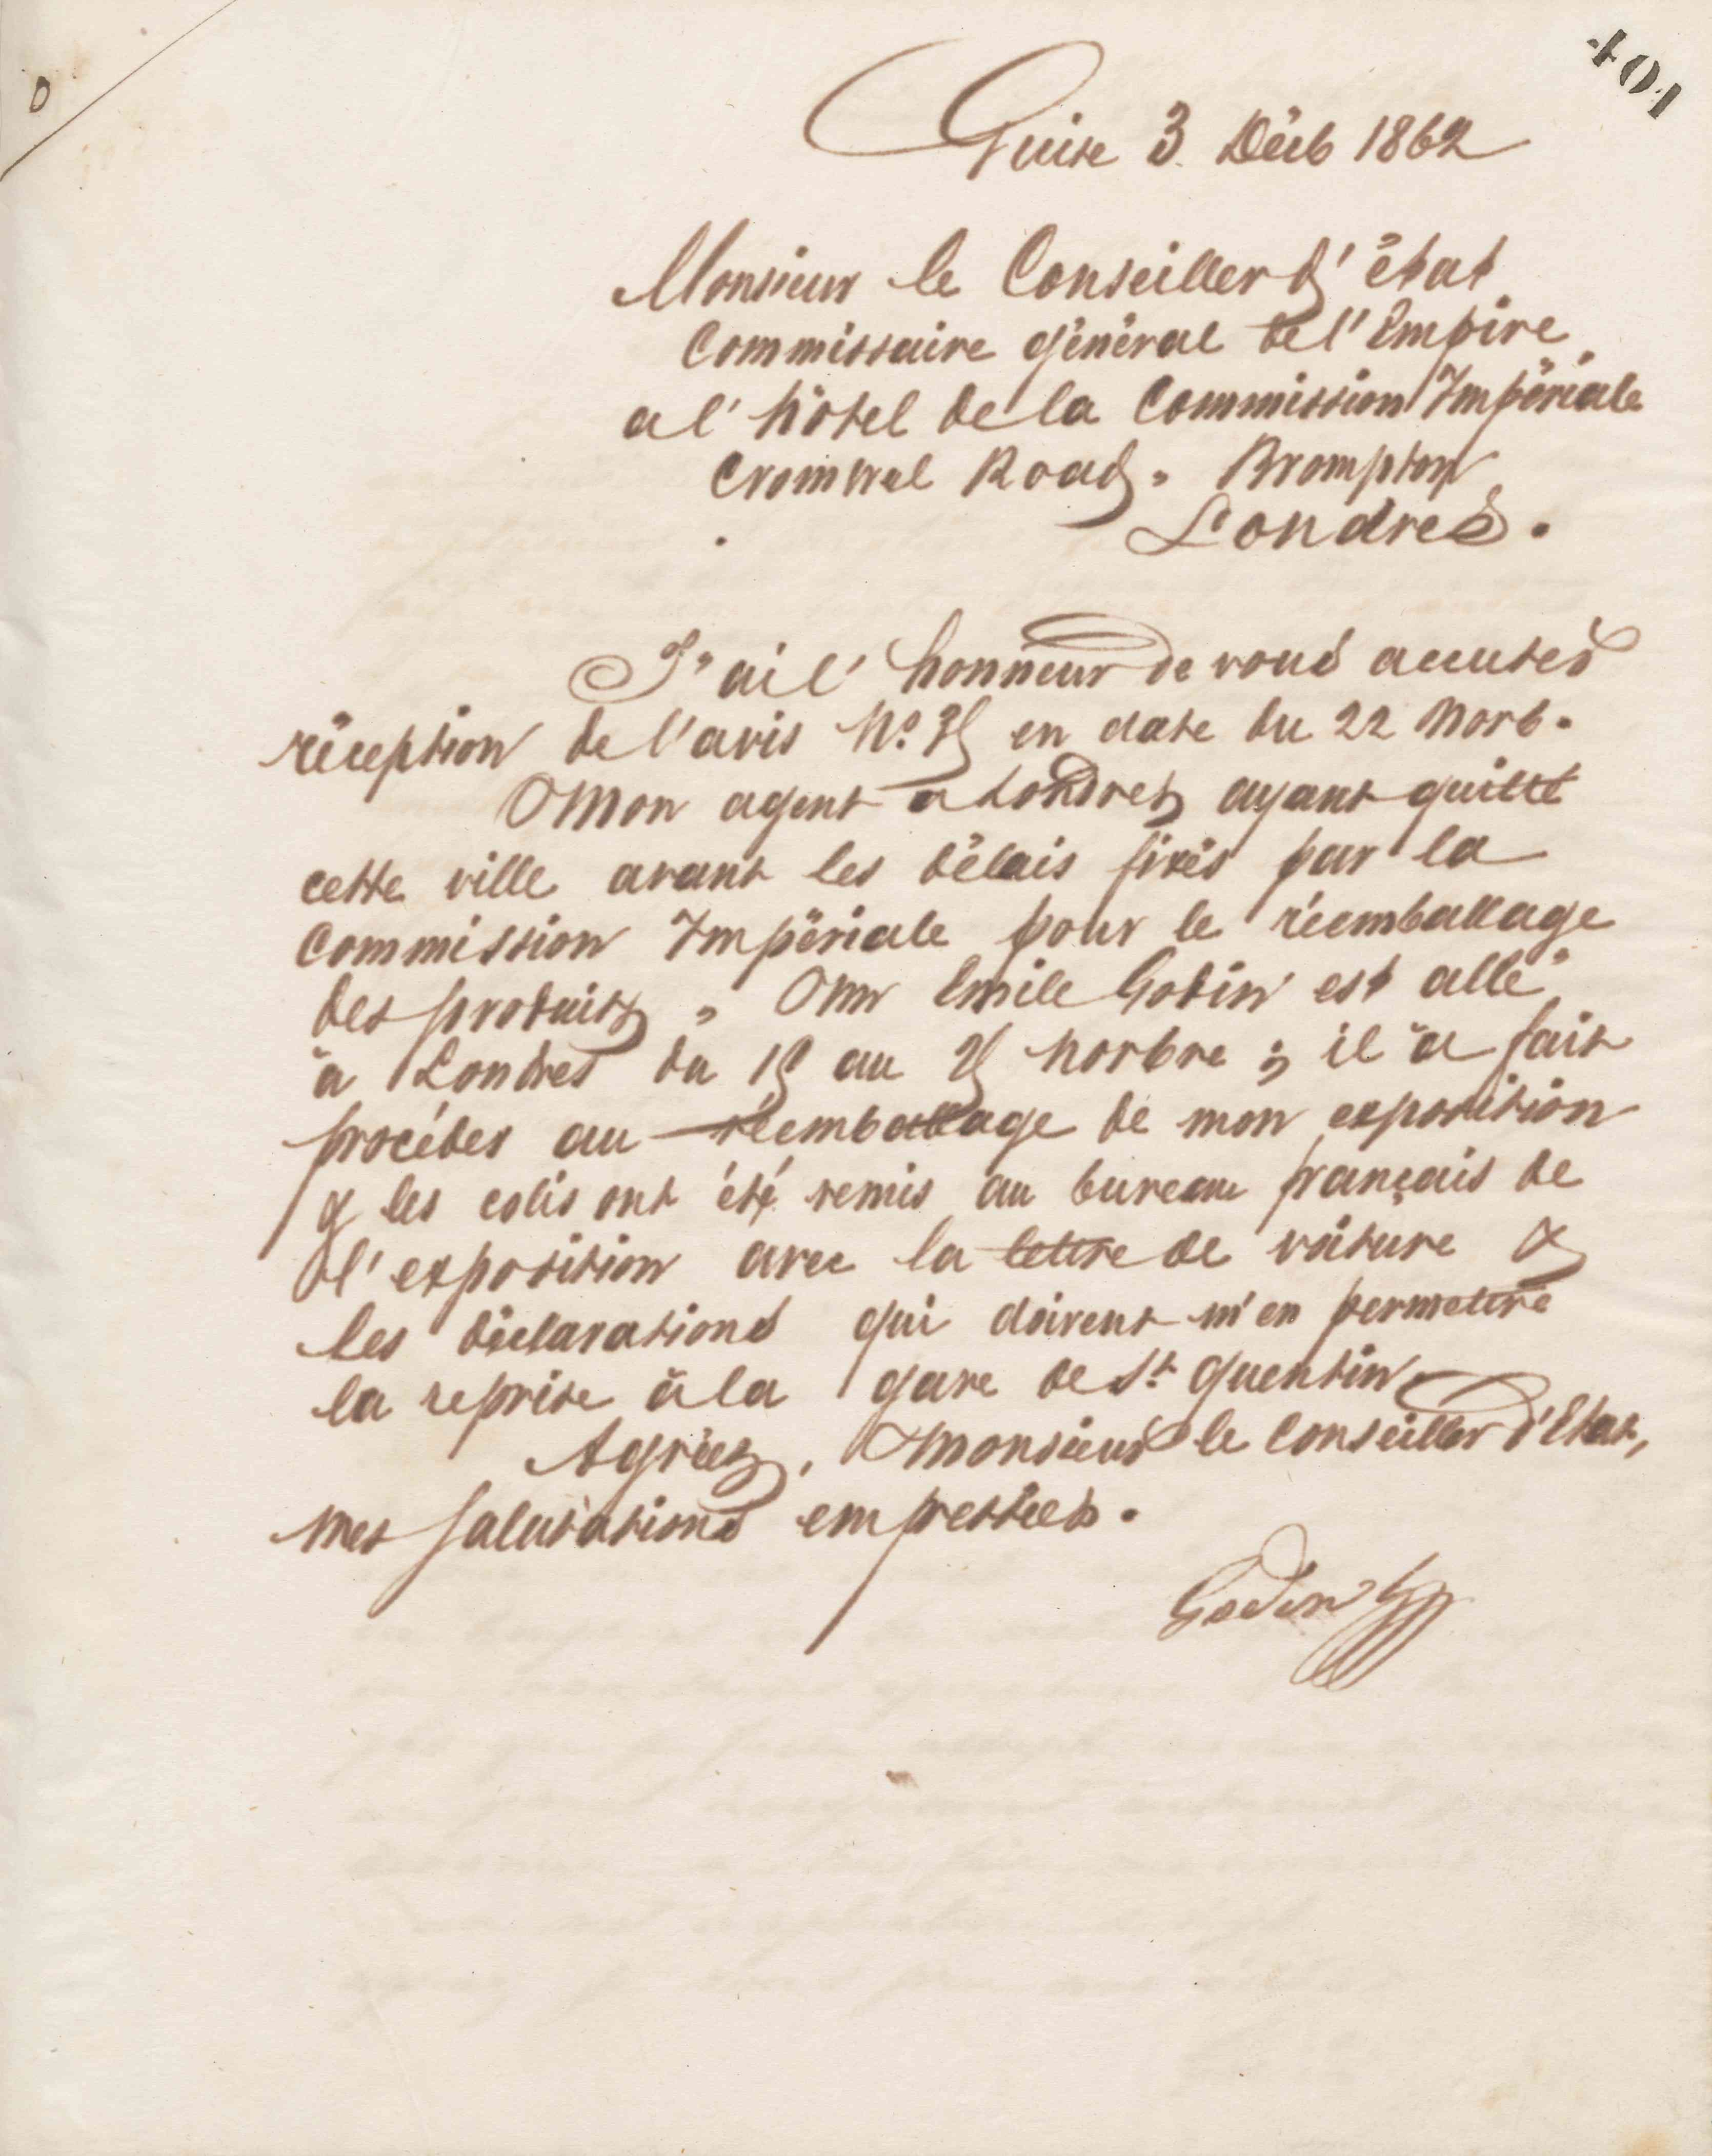 401
D
Guise 3 Décb 1862
Monsieur le Conseiller d'état
Commissaire général de l'Empire
a l'hôtel de la Commission Impériale
Cromwel Road, Brompton
Londres.
J'ai l'honneur de vous accuser
réception de l'avis No. en date du 22 Novb.
Mon agent a Londres ayant quitté
cette ville avant les délais fixés par la
Commission Impériale pour le réemballage
des produits, Mr Emile Godin est allé
à Londres du au Novbre; il a fait
procéder au réemballage de mon exposition
& les colis ont été remis au bureau français de
l'exposition avec la lettre de voiture &
les déclarations qui doivent m'en permettre
la reprise à la gare de St. Quentin
Agréez, Monsieur le Conseiller d'Etat,
mes salutations empressées.
Godin